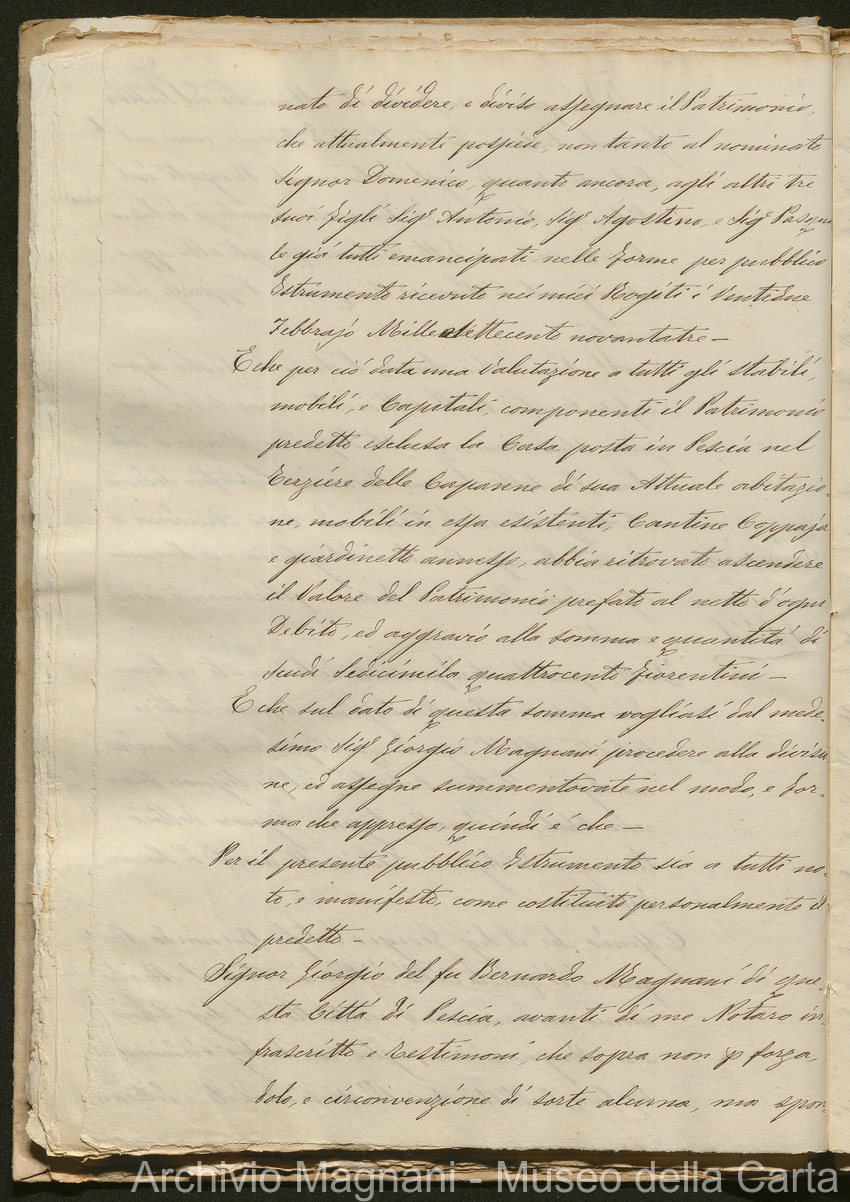 nato di dividere, e diviso assegnare il Patrimonio,
che attualmente possiede, non tanto al nominato
Signor Domenico, quanto ancora, agli altri tre
suoi figli Sig.r Antonio, Sig.r Agostino, e Sig.r Pasqua
le già tutti emancipati nelle forme per pubblico
Istrumento ricevuto nei miei Rogiti i Ventidue
Febbrajo Millesettecento novantatre —
E che per ciò data una Valutazione a tutti gli stabili,
mobili, e Capitali, componenti il Patrimonio
predetto esclusa la Casa posta in Pescia nel
Terziere delle Capanne di sua Attuale abitazio-
ne, mobili in essa esistenti, Cantine Coppaja
e giardinetto annesso, abbia ritrovato ascendere
il Valore del Patrimonio prefato al netto d'ogni
Debito, ed aggravio alla somma e quantità di
scudi Sedicimila quattrocento fiorentini —
E che sul dato di questa somma vogliasi dal mede-
simo Sig.r Giorgio Magnani procedere alla divisio
ne, ed assegne summentovate nel modo, e for-
ma che appresso, quindi è che —
Per il presente pubblico Istrumento sia a tutti no-
to, e manifesto, come costituito personalmente il
predetto —
Signor Giorgio del fu Bernardo Magnani di que
sta Città di Pescia, avanti di me Notaro in-
frascritto e Testimoni, che sopra non p forza
dolo, e circonvenzione di sorte alcuna, ma spon-
Archivio Magnani - Museo della Carta